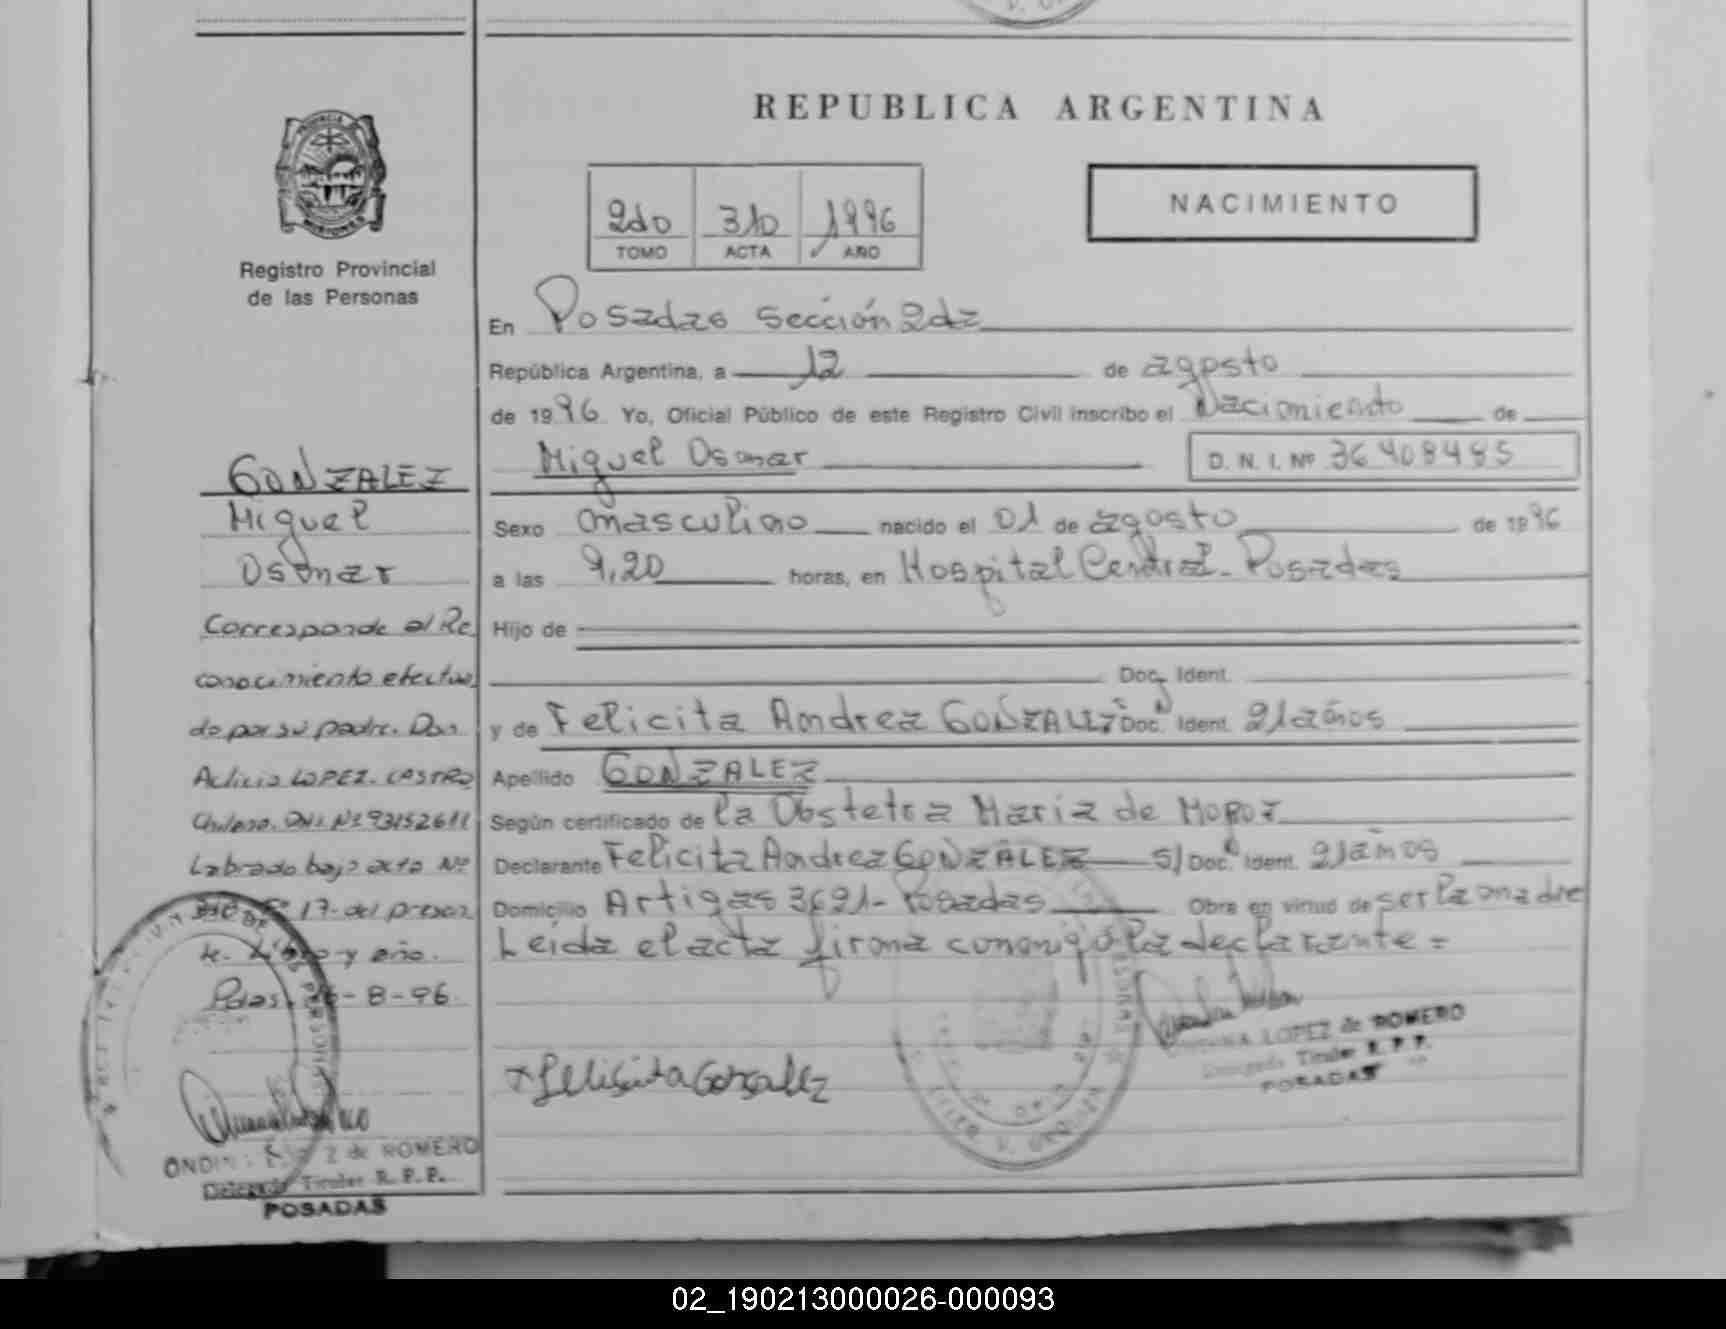 REPUBLICA ARGENTINA
NACIMIENTO
2do 310 1996
TOMO ACTA AÑO
Registro Provincial
de las Personas
En Posadas Sección 2da
República Argentina, a 12 de agosto
de 1996 Yo, Oficial Público de este Registro Civil inscribo el Nacimiento de
Miguel Osmar D. N. I. Nº 36408485
Sexo masculino nacido el 01 de agosto de 1996
a las 9,20 horas, en Hospital Central - Posadas
Hijo de
Doc. Ident.
y de Felicita Andrea GONZALEZ Doc. Ident. 21 años
Apellido GONZALEZ
Según certificado de la Obstetra Maria de
Declarante Felicita Andrea GONZALEZ S/ Doc. Ident. 21 años
Domicilio Artigas 3621 - Posadas Obra en virtud de ser la madre
Leida el acta firma conmigo la declarante =
x Felisita Gonzalez
LOPEZ de ROMERO
Titular R. P. P.
POSADAS
GONZALEZ
Miguel
Osmar
Corresponde al Re
conocimiento efectua
do por su padre. Don
LOPEZ. CASTRO
Chileno. DNI Nº 93152611
Labrado bajo acta Nº
17. del presen
te. Libro y año.
Pdas. -8-96.
de ROMERO
Titular R. P. P.
POSADAS
02_190213000026-000093